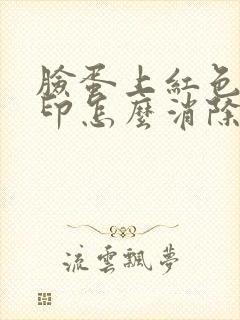 臉蛋上紅色
印怎麼消除
流雲飄夢